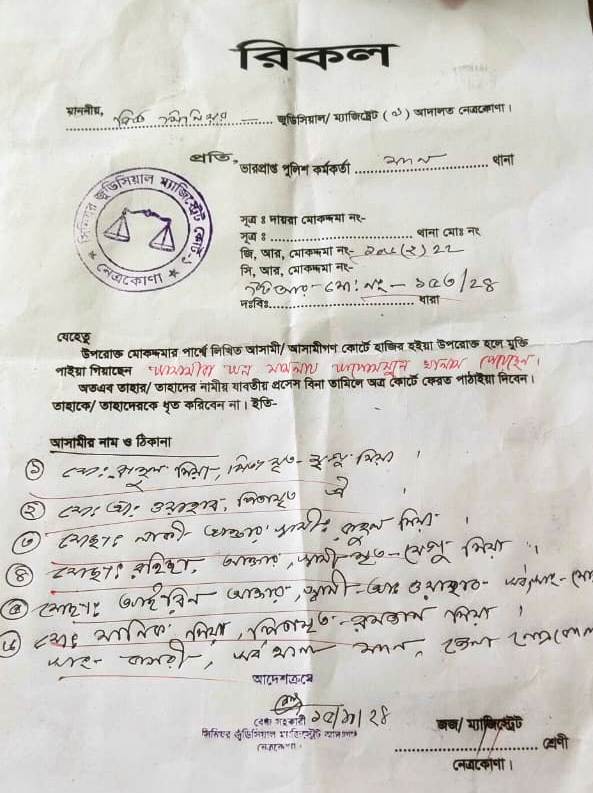 রিকল
মাননীয়, বিজ্ঞ সিনিয়র জুডিসিয়াল/ ম্যাজিস্ট্রেট (১) আদালত নেত্রকোণা।
প্রতি,
ভারপ্রাপ্ত পুলিশ কর্মকর্তা মদন থানা
সিনিয়র জুডিসিয়াল ম্যাজিস্ট্রেট কোর্ট-১
নেত্রকোণা
সূত্র ঃ দায়রা মোকদ্দমা নং-
সূত্র ঃ থানা মোঃ নং
জি, আর, মোকদ্দমা নং- (২) ২২
সি, আর, মোকদ্দমা নং-
মোঃ নং - /২৪
দঃবিঃ ধারা
যেহেতু
উপরোক্ত মোকদ্দমার পার্শ্বে লিখিত আসামী/ আসামীগণ কোর্টে হাজির হইয়া উপরোক্ত হলে মুক্তি
পাইয়া গিয়াছেন আসামীরা খালাস পেয়েছেন।
অতএব তাহার/ তাহাদের নামীয় যাবতীয় প্রসেস বিনা তামিলে অত্র কোর্টে ফেরত পাঠাইয়া দিবেন।
তাহাকে/ তাহাদেরকে ধৃত করিবেন না। ইতি-
আসামীর নাম ও ঠিকানা
১ মোঃ মিয়া, পিতা মৃত- মিয়া
২ মোঃ আঃ ওয়াহাব, পিতামৃত ঐ
৩ মোছাঃ লাকী আক্তার স্বামী: মিয়া
৪ মোছাঃ রহিমা আক্তার, স্বামী-মৃত- মিয়া
৫ মোছাঃ আক্তার, স্বামী-আঃ ওয়াহাব-
৬ মোঃ মানিক মিয়া, পিতামৃত- রমজান মিয়া
সর্ব থানা মদন, জেলা
আদেশক্রমে
বেঞ্চ সহকারী /২৪
সিনিয়র জুডিসিয়াল ম্যাজিস্ট্রেট আদালত
নেত্রকোণা।
জজ/ ম্যাজিস্ট্রেট
শ্রেণী
নেত্রকোণা।